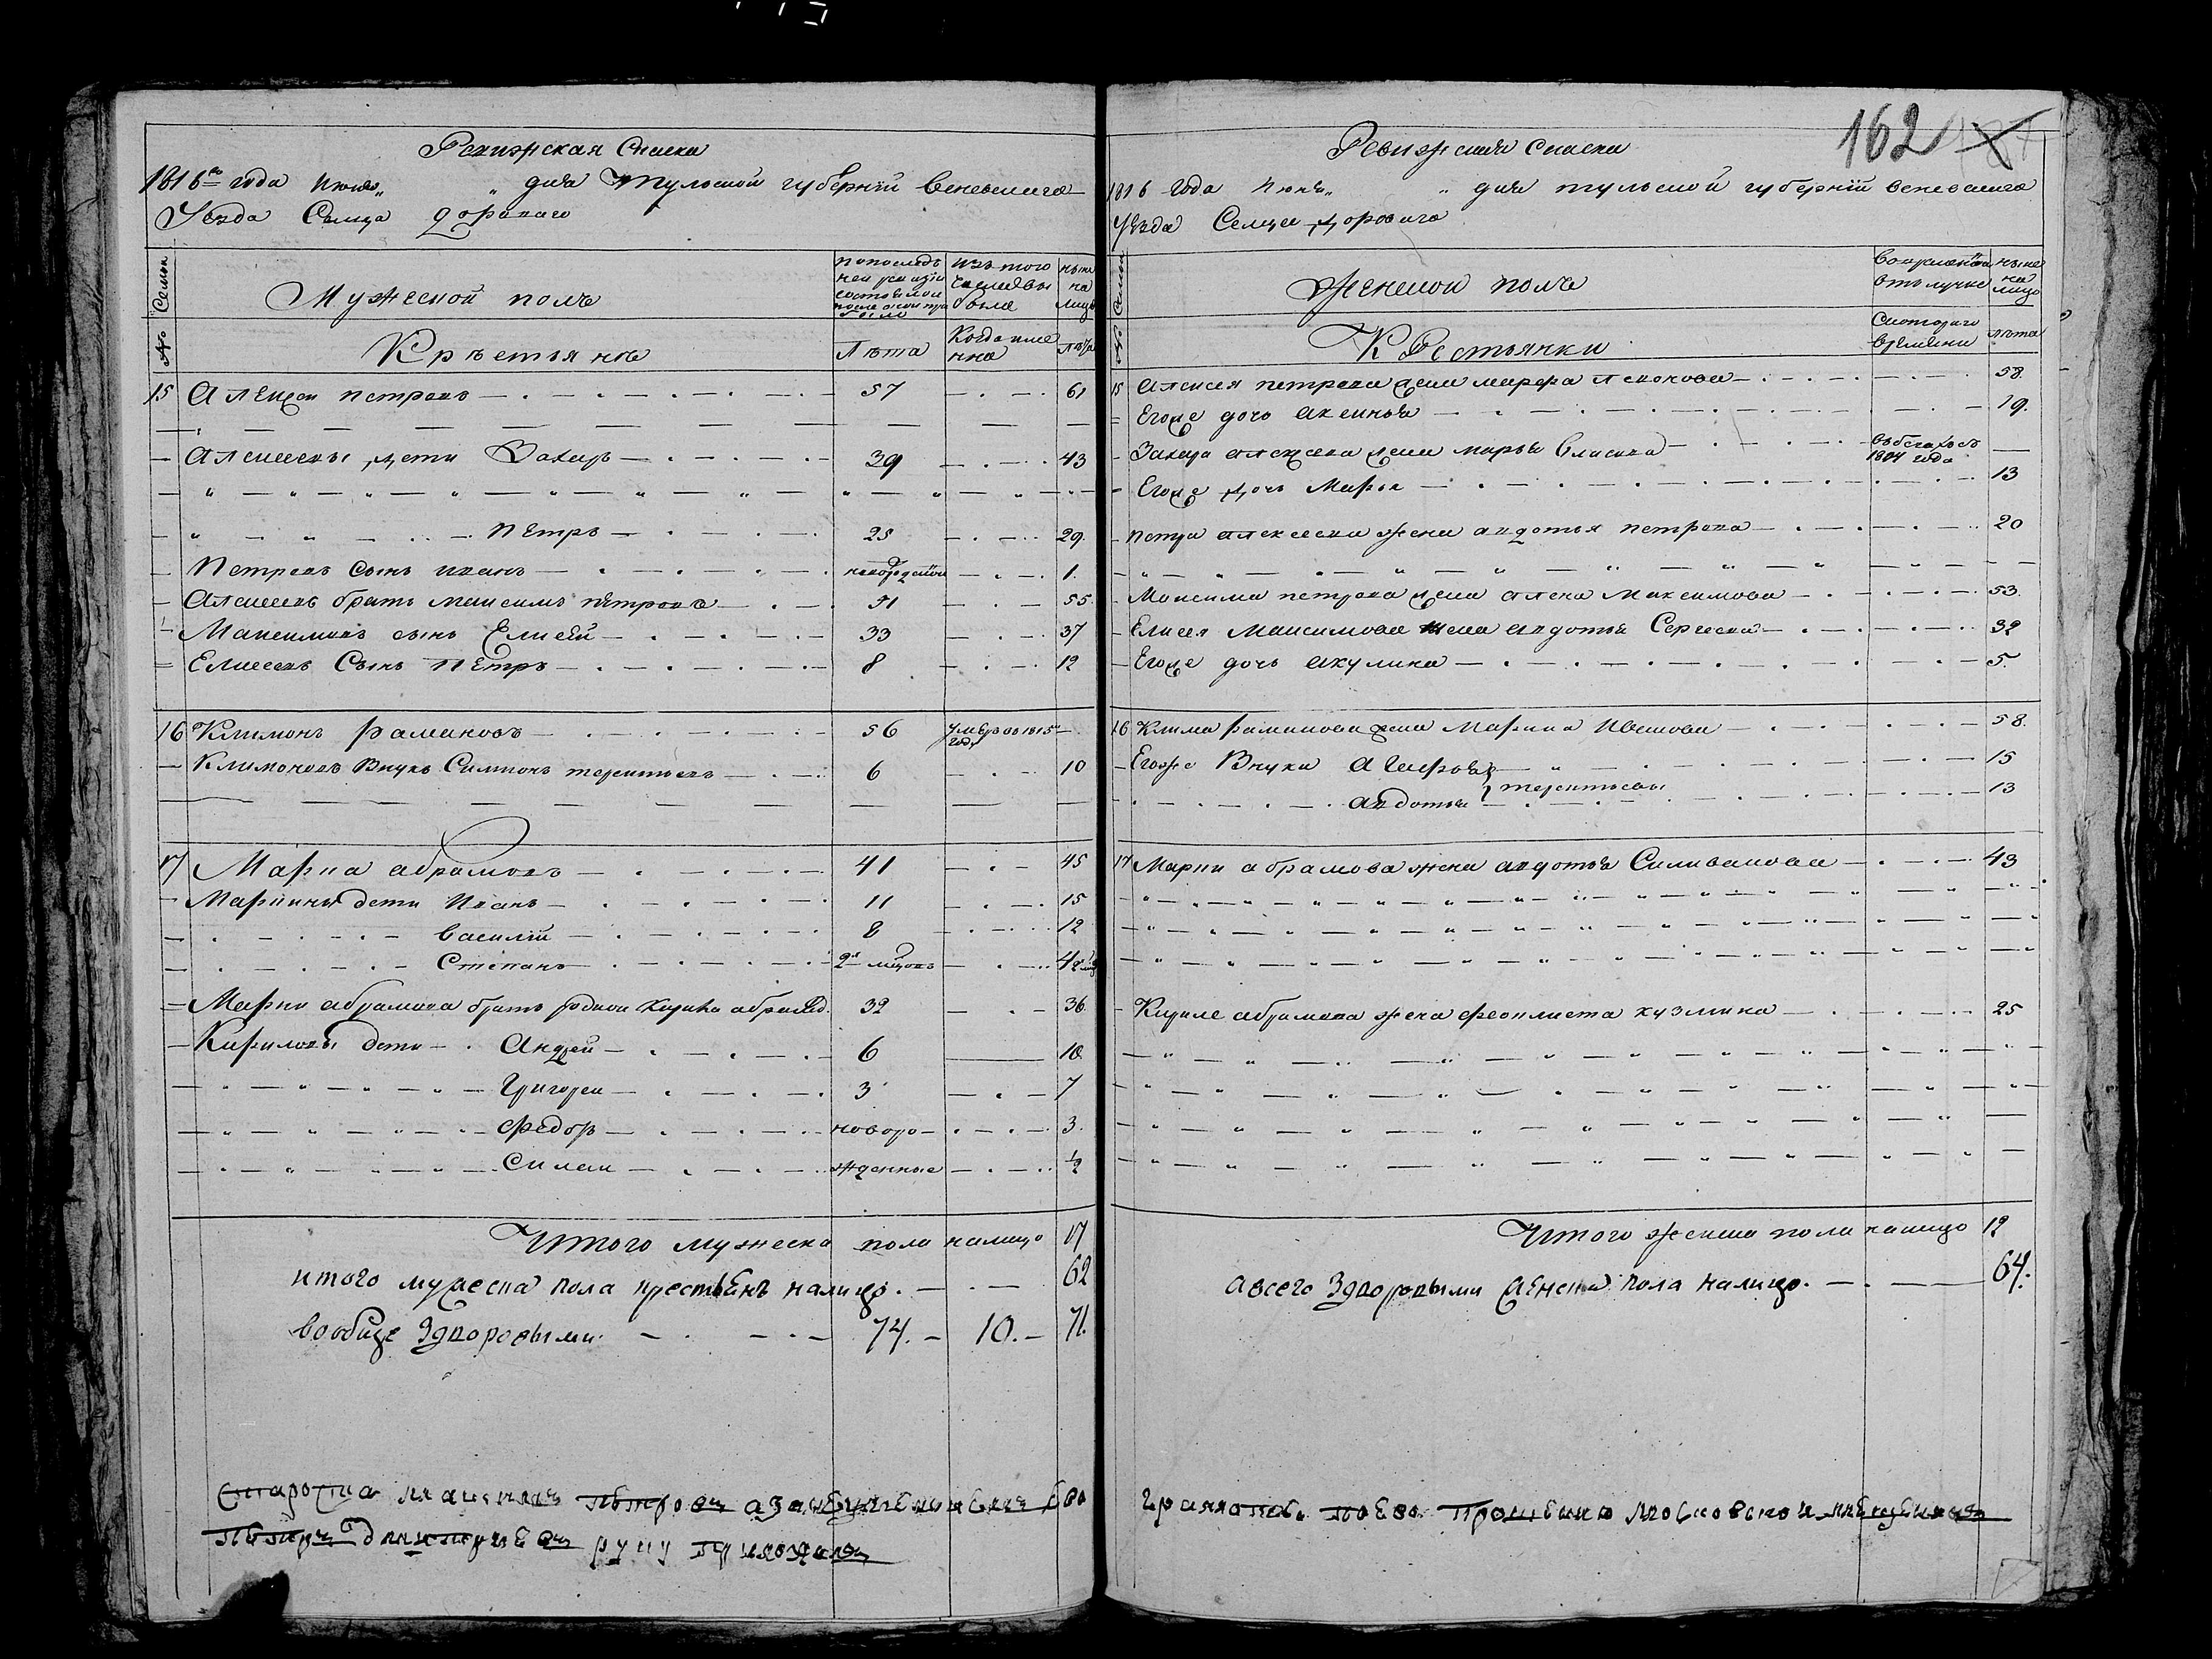 162
Ревижская Скаска
1816го года июня „ „ дня Тульской губернїи веневскаго
Уезда Селца дороваго
№ Семьи
Мужеской полъ
по последней ревизїи состояло и после оной прибыло
изъ того числа выбыло
ныне на лицо
Крѣстьяне
Лѣта
Когда именно
лѣта
15 Алексеи петровъ 57 61
Алексеевы дети Захаръ 39 43
Петръ 25 29
Петровъ Сынъ иванъ новорожденной 1
Алексеевъ братъ максимъ петровъ 51 55
Максимовъ сынъ Елисей 33 37
Елисеевъ Сынъ петръ 8 12
16 Климонъ рамановъ 56 умеръ в 1815 году
Климоновъ Внукъ Симионъ терентьевъ 6 10
17 Марка абрамовъ 41 45
Маркины дети Иванъ 11 15
василїй 8 12
Степанъ 2х мцовъ 4
Марки абрамова братъ родной Кирила абрамовъ 32 36
Кириловы дети Андреи 6 10
Григореи 3 7
Федоръ новоро- 3
Силаи жденные ½
Итого мужеска пола налицо 17
итого мужеска пола крестьянъ налицо 62
вообще Здворовыми 74. 10. 71.
Староста максимъ петровъ а заневуменинемъ Ево
петръ дмитриевъ руку приложилъ
Ревижская Скаска
1816 Года Июня „ „ дня тульской губернїи веневскаго
Уезда Селца Дороваго
№ Семьи
Женской полъ
во временной отлучке
ныне на лицо
Крестьянки
Скотораго времени
лѣта
15 Алексея петрова жена марфа 58
Егоже дочь аксинья 19
Захара алексеева жена марья власова въ бегахъ съ 1804 года
Егоже Дочь Марья 13
петра алексеева жена авдотья петрова 20
Максима петрова жена алена Максимова 53
Елисея Максимова жена авдотья Сергеева 32
Егоже дочь акулина 5
16 Клима раманова жена Марина Ивanова 58
Егоже Внуки Агафья 15
авдотья } терентьевы 13
17 Марки абрамова жена авдотья Силиванова 43
Кирилы абрамова жена феоклиста кузмина 25
Итого женска пола налицо 12
а всего Здворовыми женска пола налицо 64.
грамоте по Ево прошению московской мещенинъ